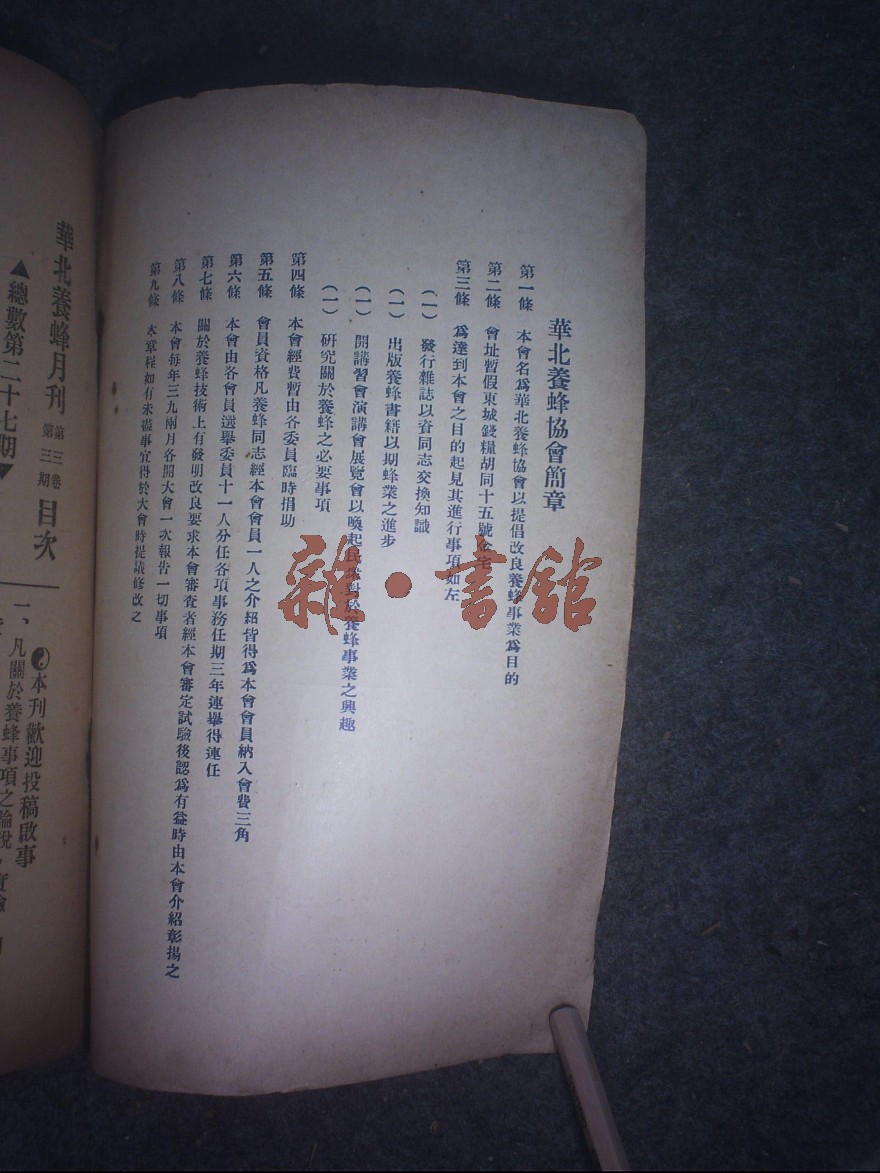 華北養蜂協會簡章
第一條 本會名爲華北養蜂協會以提倡改良養蜂事業爲目的
第二條 會址暫假東城錢糧胡同十五號余宅
第三條 爲達到本會之目的起見其進行事項如左
(一) 發行雜誌以資同志交換知識
(一) 出版養蜂書籍以期蜂業之進步
(一) 開講習會演講會展覽會以喚起民衆對於養蜂事業之興趣
(一) 研究關於養蜂之必要事項
第四條 本會經費暫由各委員臨時捐助
第五條 會員資格凡養蜂同志經本會會員一人之介紹皆得爲本會會員納入會費三角
第六條 本會由各會員選舉委員十一人分任各項事務任期三年連舉得連任
第七條 關於養蜂技術上有發明改良要求本會審查者經本會審定試驗後認爲有益時由本會介紹彰揚之
第八條 本會每年三九兩月各開大會一次報告一切事項
第九條 本章程如有未盡事宜得於大會時提議修改之
雜·書館
華北養蜂月刊 第三卷 第三期 目次
▲總數第二十七期▼
本刊歡迎投稿啟事
一、凡關於養蜂事項之論說,實驗